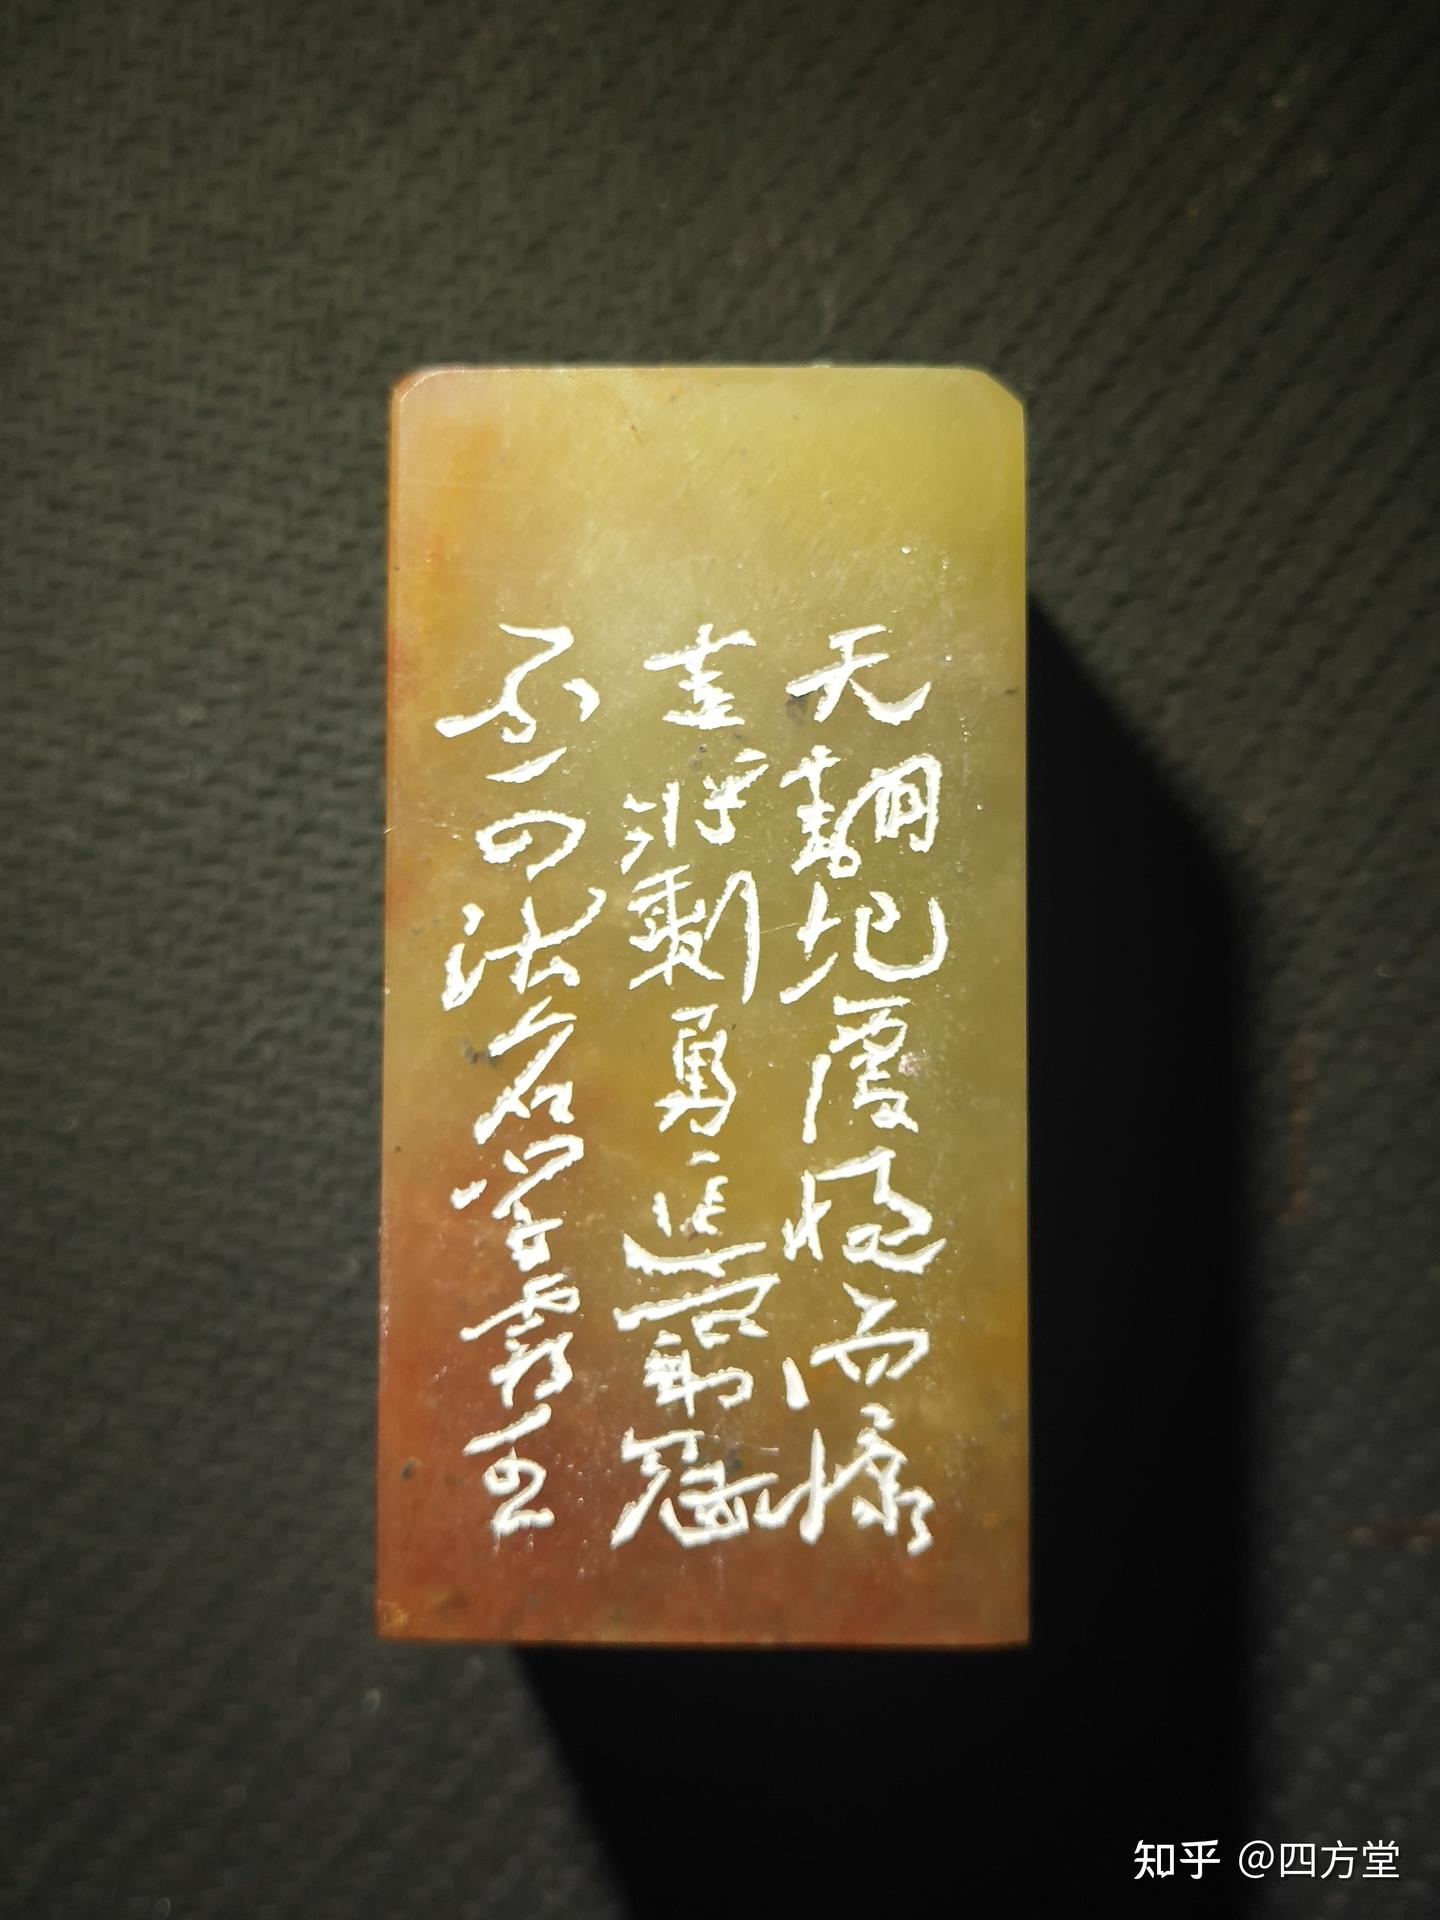 天翻地覆慨而慷
宜将剩勇追穷寇
不可沽名学霸王
知乎 @四方堂